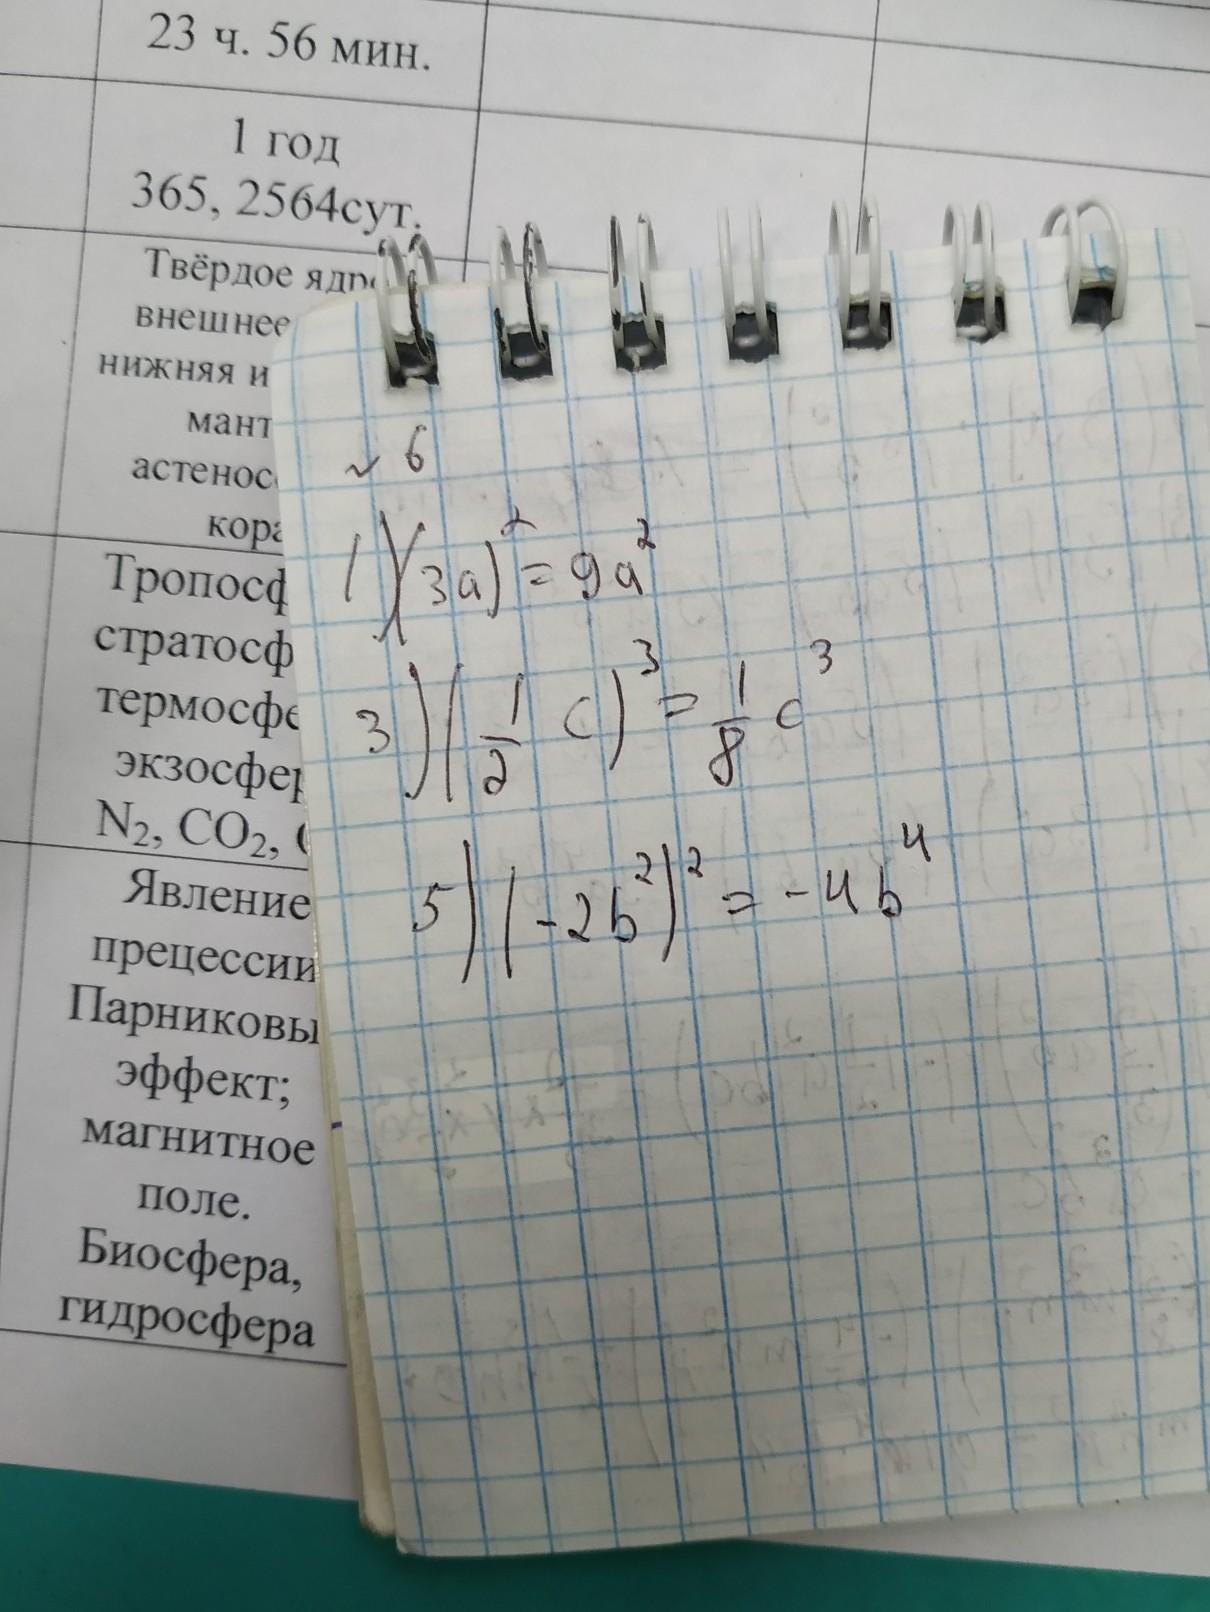 23 ч. 56 мин.
1 год
365, 2564сут.
Твёрдое ядро
внешнее
нижняя и
мант
астенос
кора
Тропосф
стратосф
термосфе
экзосфер
N₂, CO₂,
Явление
прецессии
Парниковы
эффект;
магнитное
поле.
Биосфера,
гидросфера
№ 6
1) (3a)² = 9a²
3) (1/2 c)³ = 1/8 c³
5) (-2b²)² = -4b⁴